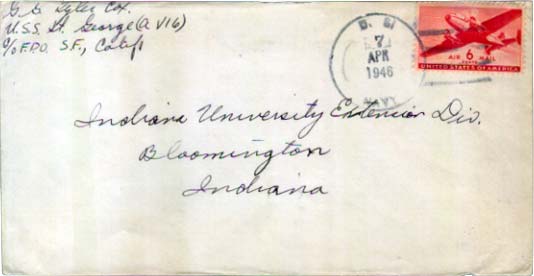 G. G. Tyler Cox.
U.S.S. St. George (A V16)
c/o F.P.O. S.F., Calif
U. S.
7
APR
1946
NAVY
AIR 6 MAIL
CENTS
UNITED STATES OF AMERICA
Indiana University Extension Div.
Bloomington
Indiana